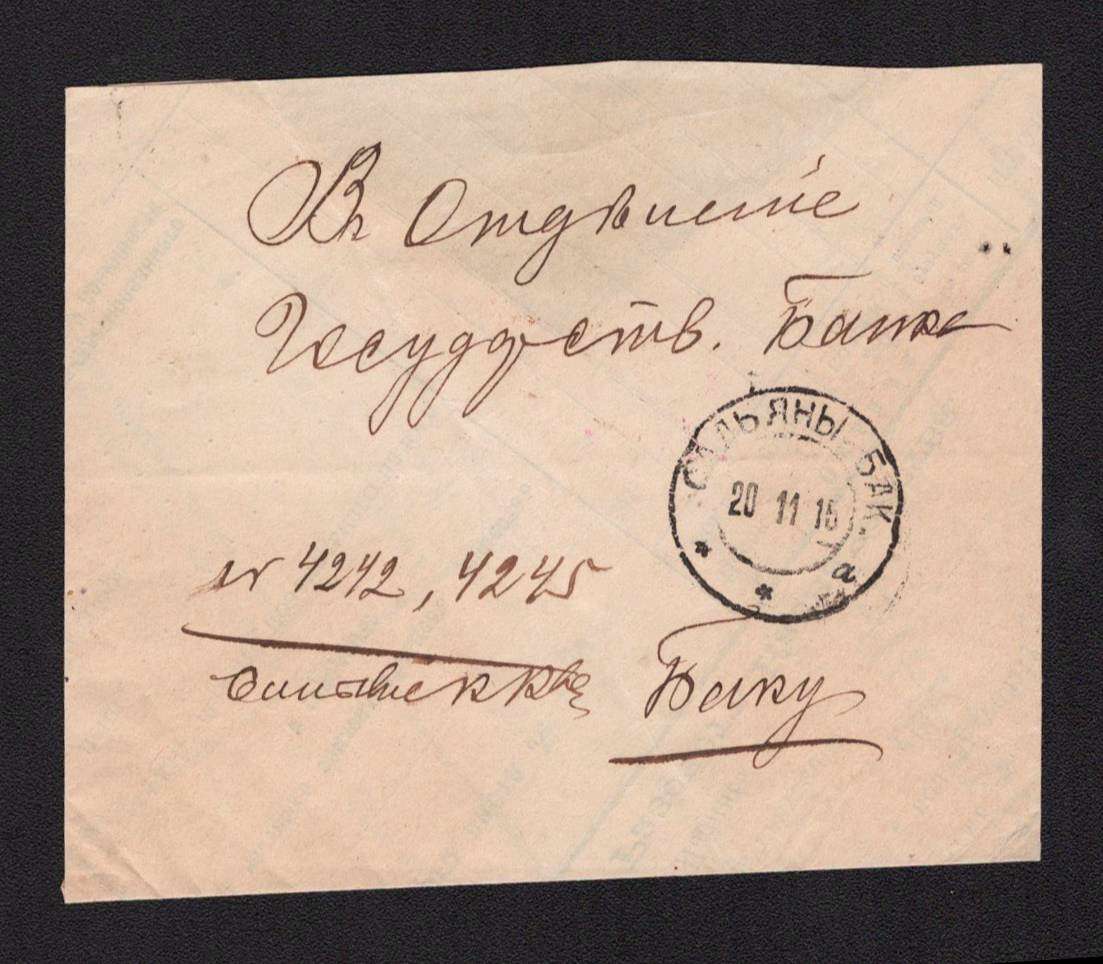 Въ Отдѣленіе
Государств. Банка
САЛЬЯНЫ БАК.
20 11 15
а
№ 4242, 4245
Баку